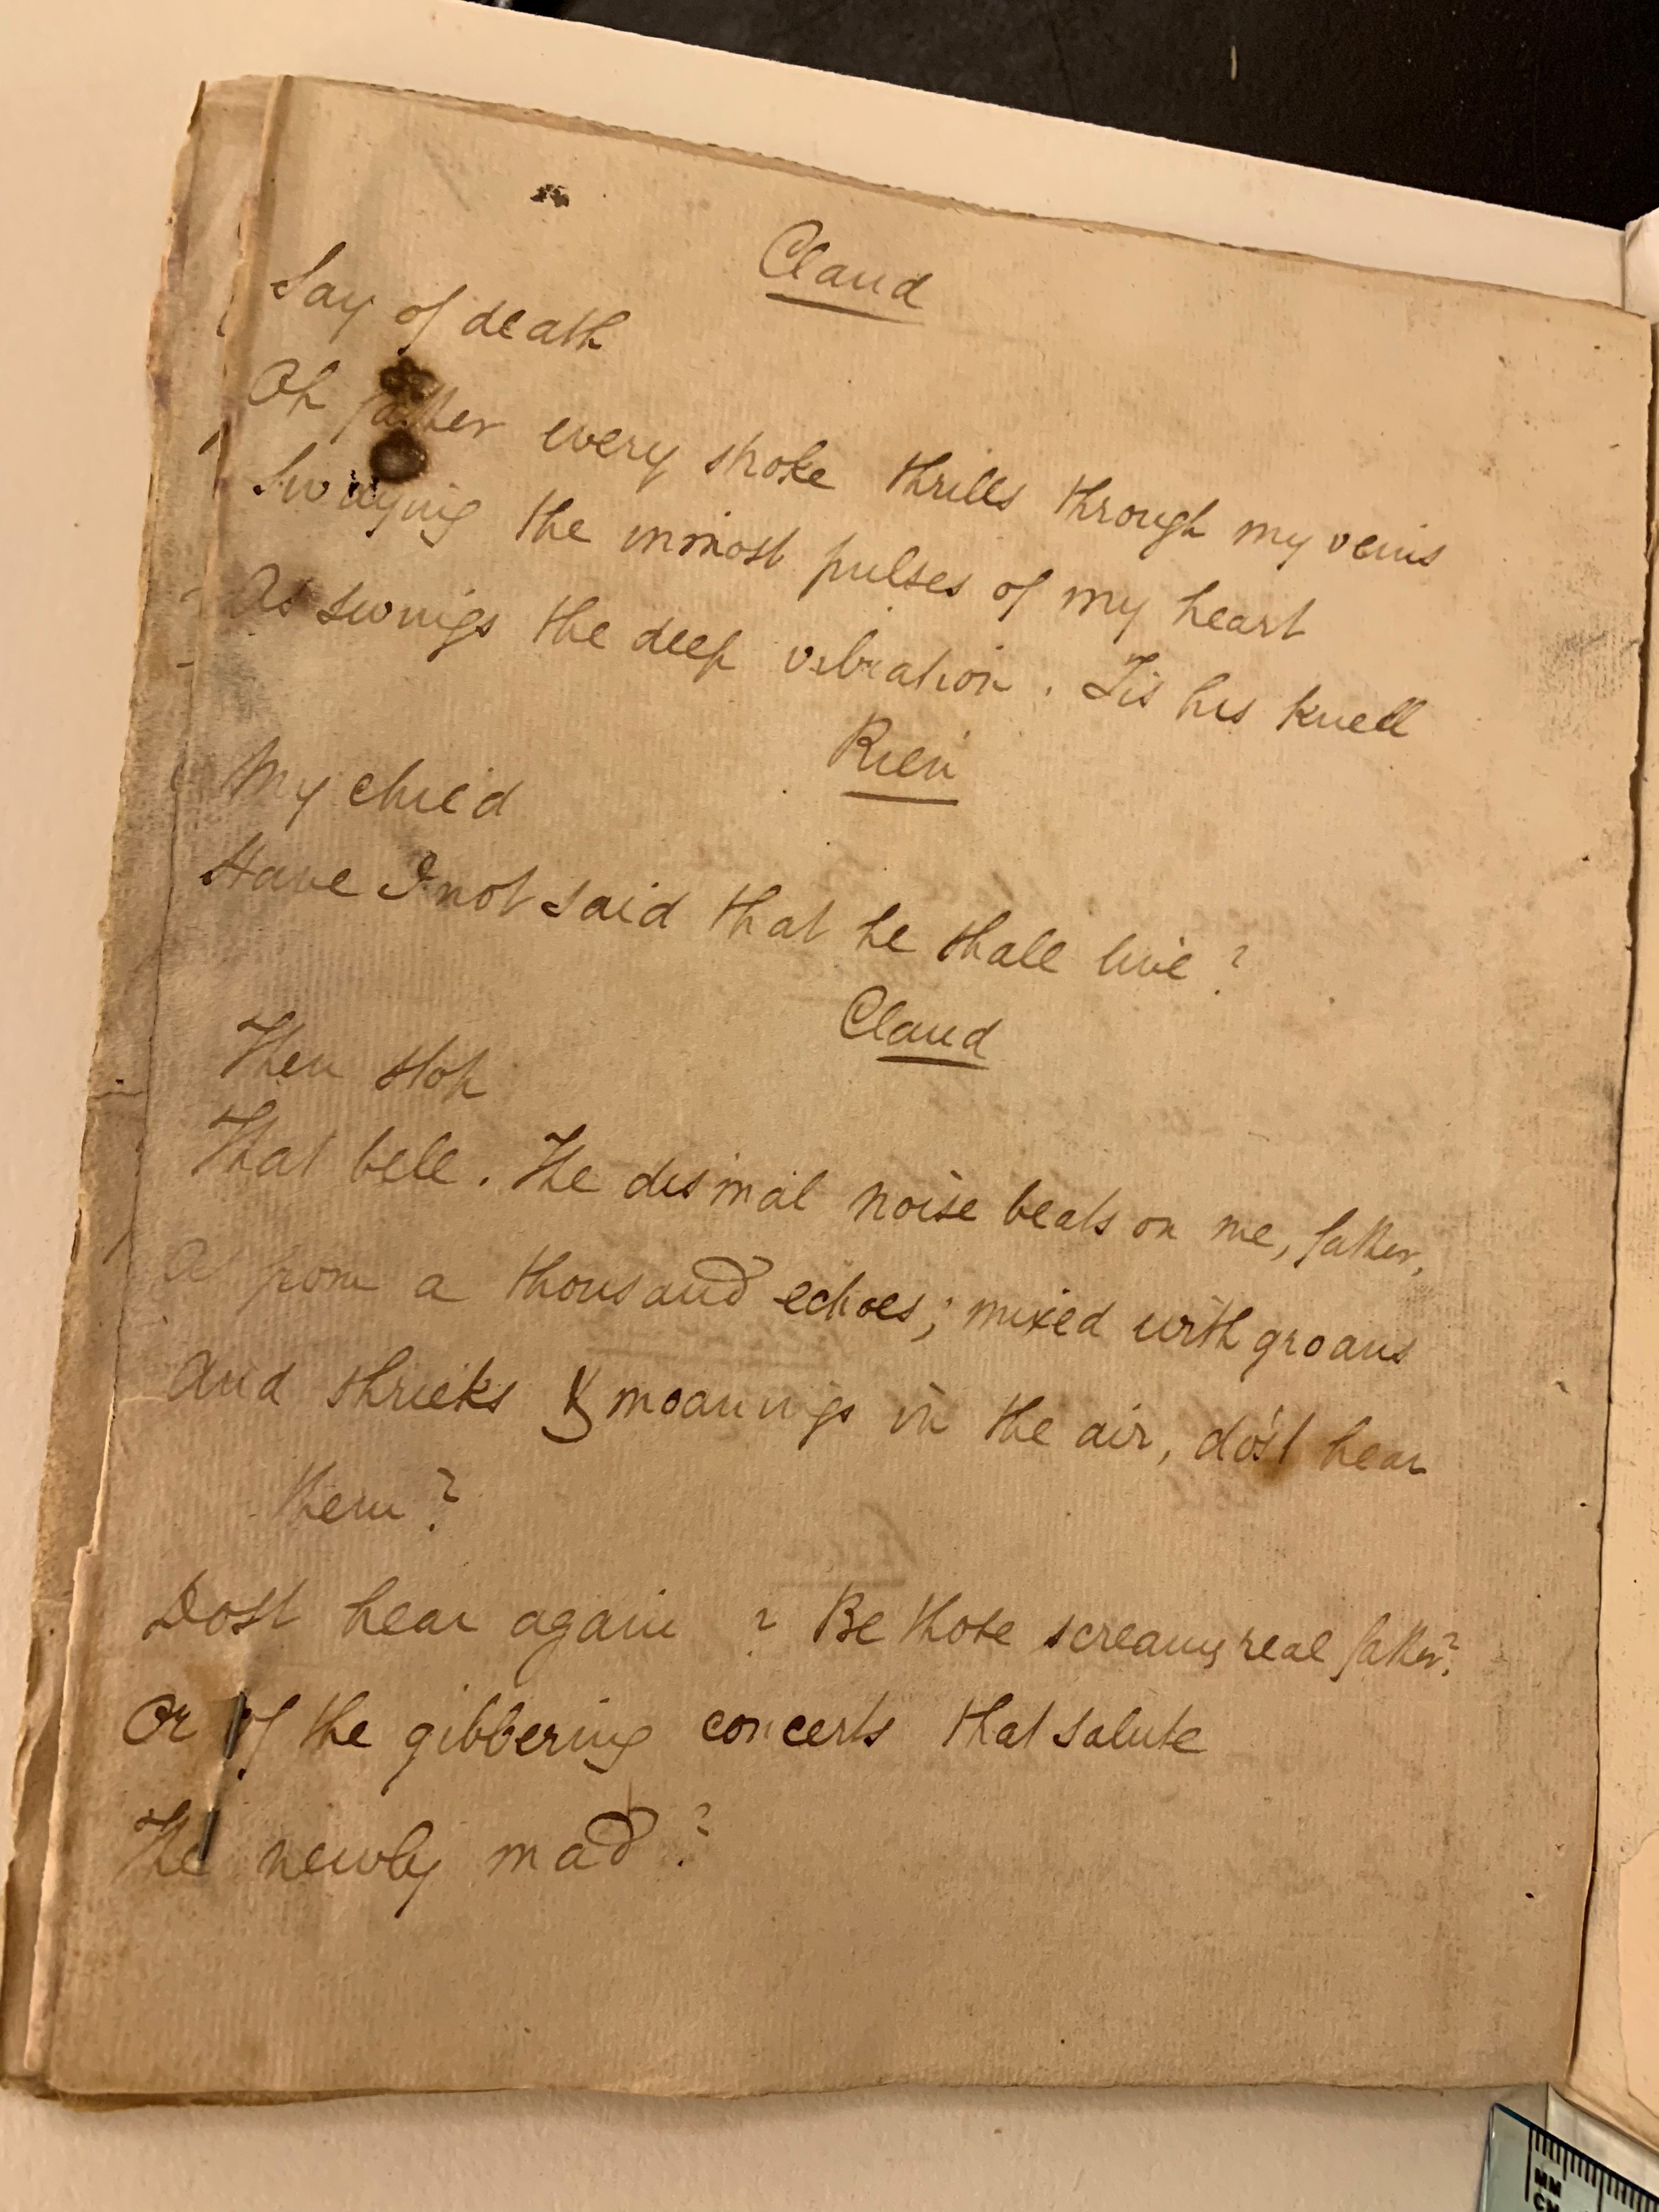 Claud
Say of death
Oh father every stroke thrills through my veins
Swaying the inmost pulses of my heart
As swings the deep vibration. Tis his knell
Rien
My child
Have I not said that he shall live?
Claud
Then stop
That bell. The dismal noise beats on me, father,
As from a thousand echoes; mixed with groans
And shrieks & moanings in the air, do'st hear
them?
Dost hear again? Be those screams real father?
Or of the gibbering concerts that salute
The newly mad?
MM
CM